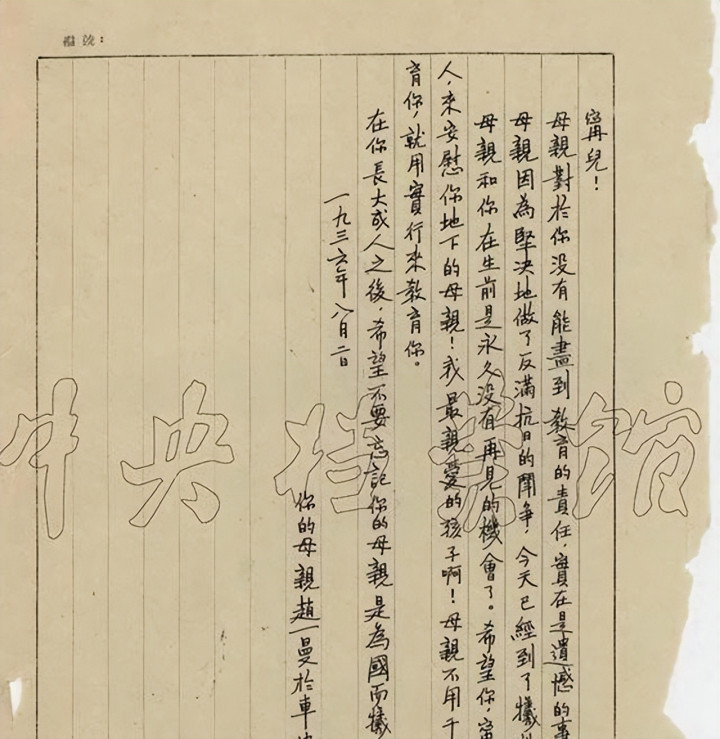 甯兒！
母親對於你没有能盡到教育的責任，實在是遺憾的事
母親因為堅决地做了反滿抗日的鬥争，今天已經到了犧
母親和你在生前是永久没有再見的機會了。希望你，甯
人，來安慰你地下的母親！我最親愛的孩子啊！母親不用千
育你，就用實行來教育你。
在你長大成人之後，希望不要忘記你的母親是為國而犧
一九三六年八月二日
你的母親趙一曼於車
中央档案館